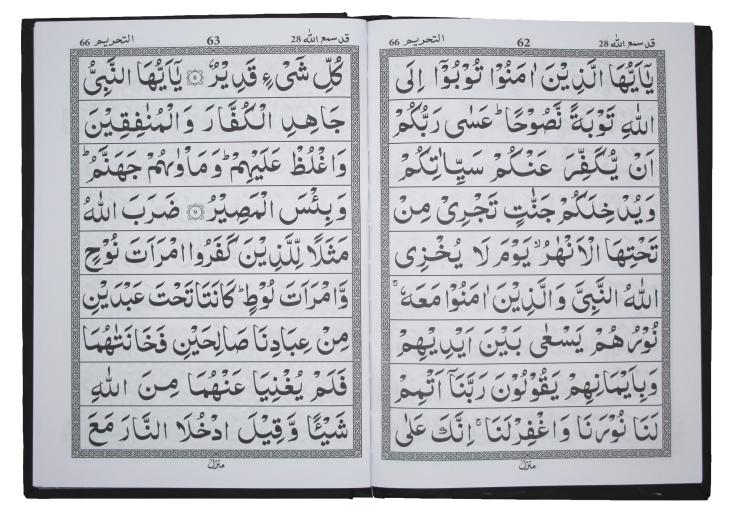 قد سمع الله 28 62 التحریم 66
یٰۤاَیُّهَا الَّذِیْنَ اٰمَنُوْا تُوْبُوْۤا اِلَی
اللّٰهِ تَوْبَةً نَّصُوْحًا ؕ عَسٰی رَبُّكُمْ
اَنْ یُّكَفِّرَ عَنْكُمْ سَیِّاٰتِكُمْ
وَیُدْخِلَكُمْ جَنّٰتٍ تَجْرِیْ مِنْ
تَحْتِهَا الْاَنْهٰرُ ۙ یَوْمَ لَا یُخْزِی
اللّٰهُ النَّبِیَّ وَالَّذِیْنَ اٰمَنُوْا مَعَهٗ ۚ
نُوْرُهُمْ یَسْعٰی بَیْنَ اَیْدِیْهِمْ
وَبِاَیْمَانِهِمْ یَقُوْلُوْنَ رَبَّنَاۤ اَتْمِمْ
لَنَا نُوْرَنَا وَاغْفِرْ لَنَا ۚ اِنَّكَ عَلٰی
منزل
قد سمع الله 28 63 التحریم 66
كُلِّ شَیْءٍ قَدِیْرٌ ۝۸ یٰۤاَیُّهَا النَّبِیُّ
جَاهِدِ الْكُفَّارَ وَالْمُنٰفِقِیْنَ
وَاغْلُظْ عَلَیْهِمْ ؕ وَمَاْوٰىهُمْ جَهَنَّمُ ؕ
وَبِئْسَ الْمَصِیْرُ ۝۹ ضَرَبَ اللّٰهُ
مَثَلًا لِّلَّذِیْنَ كَفَرُوا امْرَاَتَ نُوْحٍ
وَّامْرَاَتَ لُوْطٍ ؕ كَانَتَا تَحْتَ عَبْدَیْنِ
مِنْ عِبَادِنَا صَالِحَیْنِ فَخَانَتٰهُمَا
فَلَمْ یُغْنِیَا عَنْهُمَا مِنَ اللّٰهِ
شَیْـًٔا وَّقِیْلَ ادْخُلَا النَّارَ مَعَ
منزل